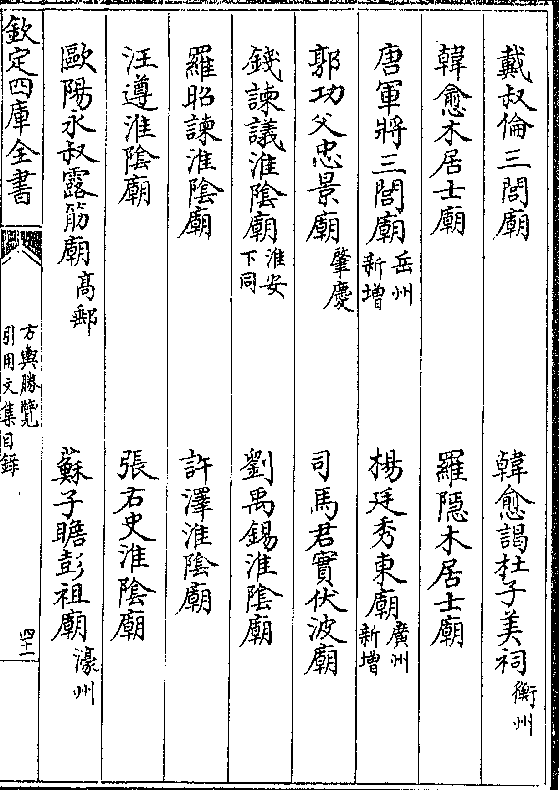 戴叔倫三閭廟　韓愈謁杜子美祠衡州
韓愈木居士廟　羅隱木居士廟
唐軍將三閭廟岳州新增　楊廷秀東廟廣州新增
郭功父忠景廟肇慶　司馬君實伏波廟
錢諫議淮陰廟淮安下同　劉禹錫淮陰廟
羅昭諫淮陰廟　許澤淮陰廟
汪遵淮陰廟　張右史淮陰廟
歐陽永叔露筋廟高郵　蘇子瞻彭祖廟濠州
欽定四庫全書　方輿勝覽引用文集目錄　四十一